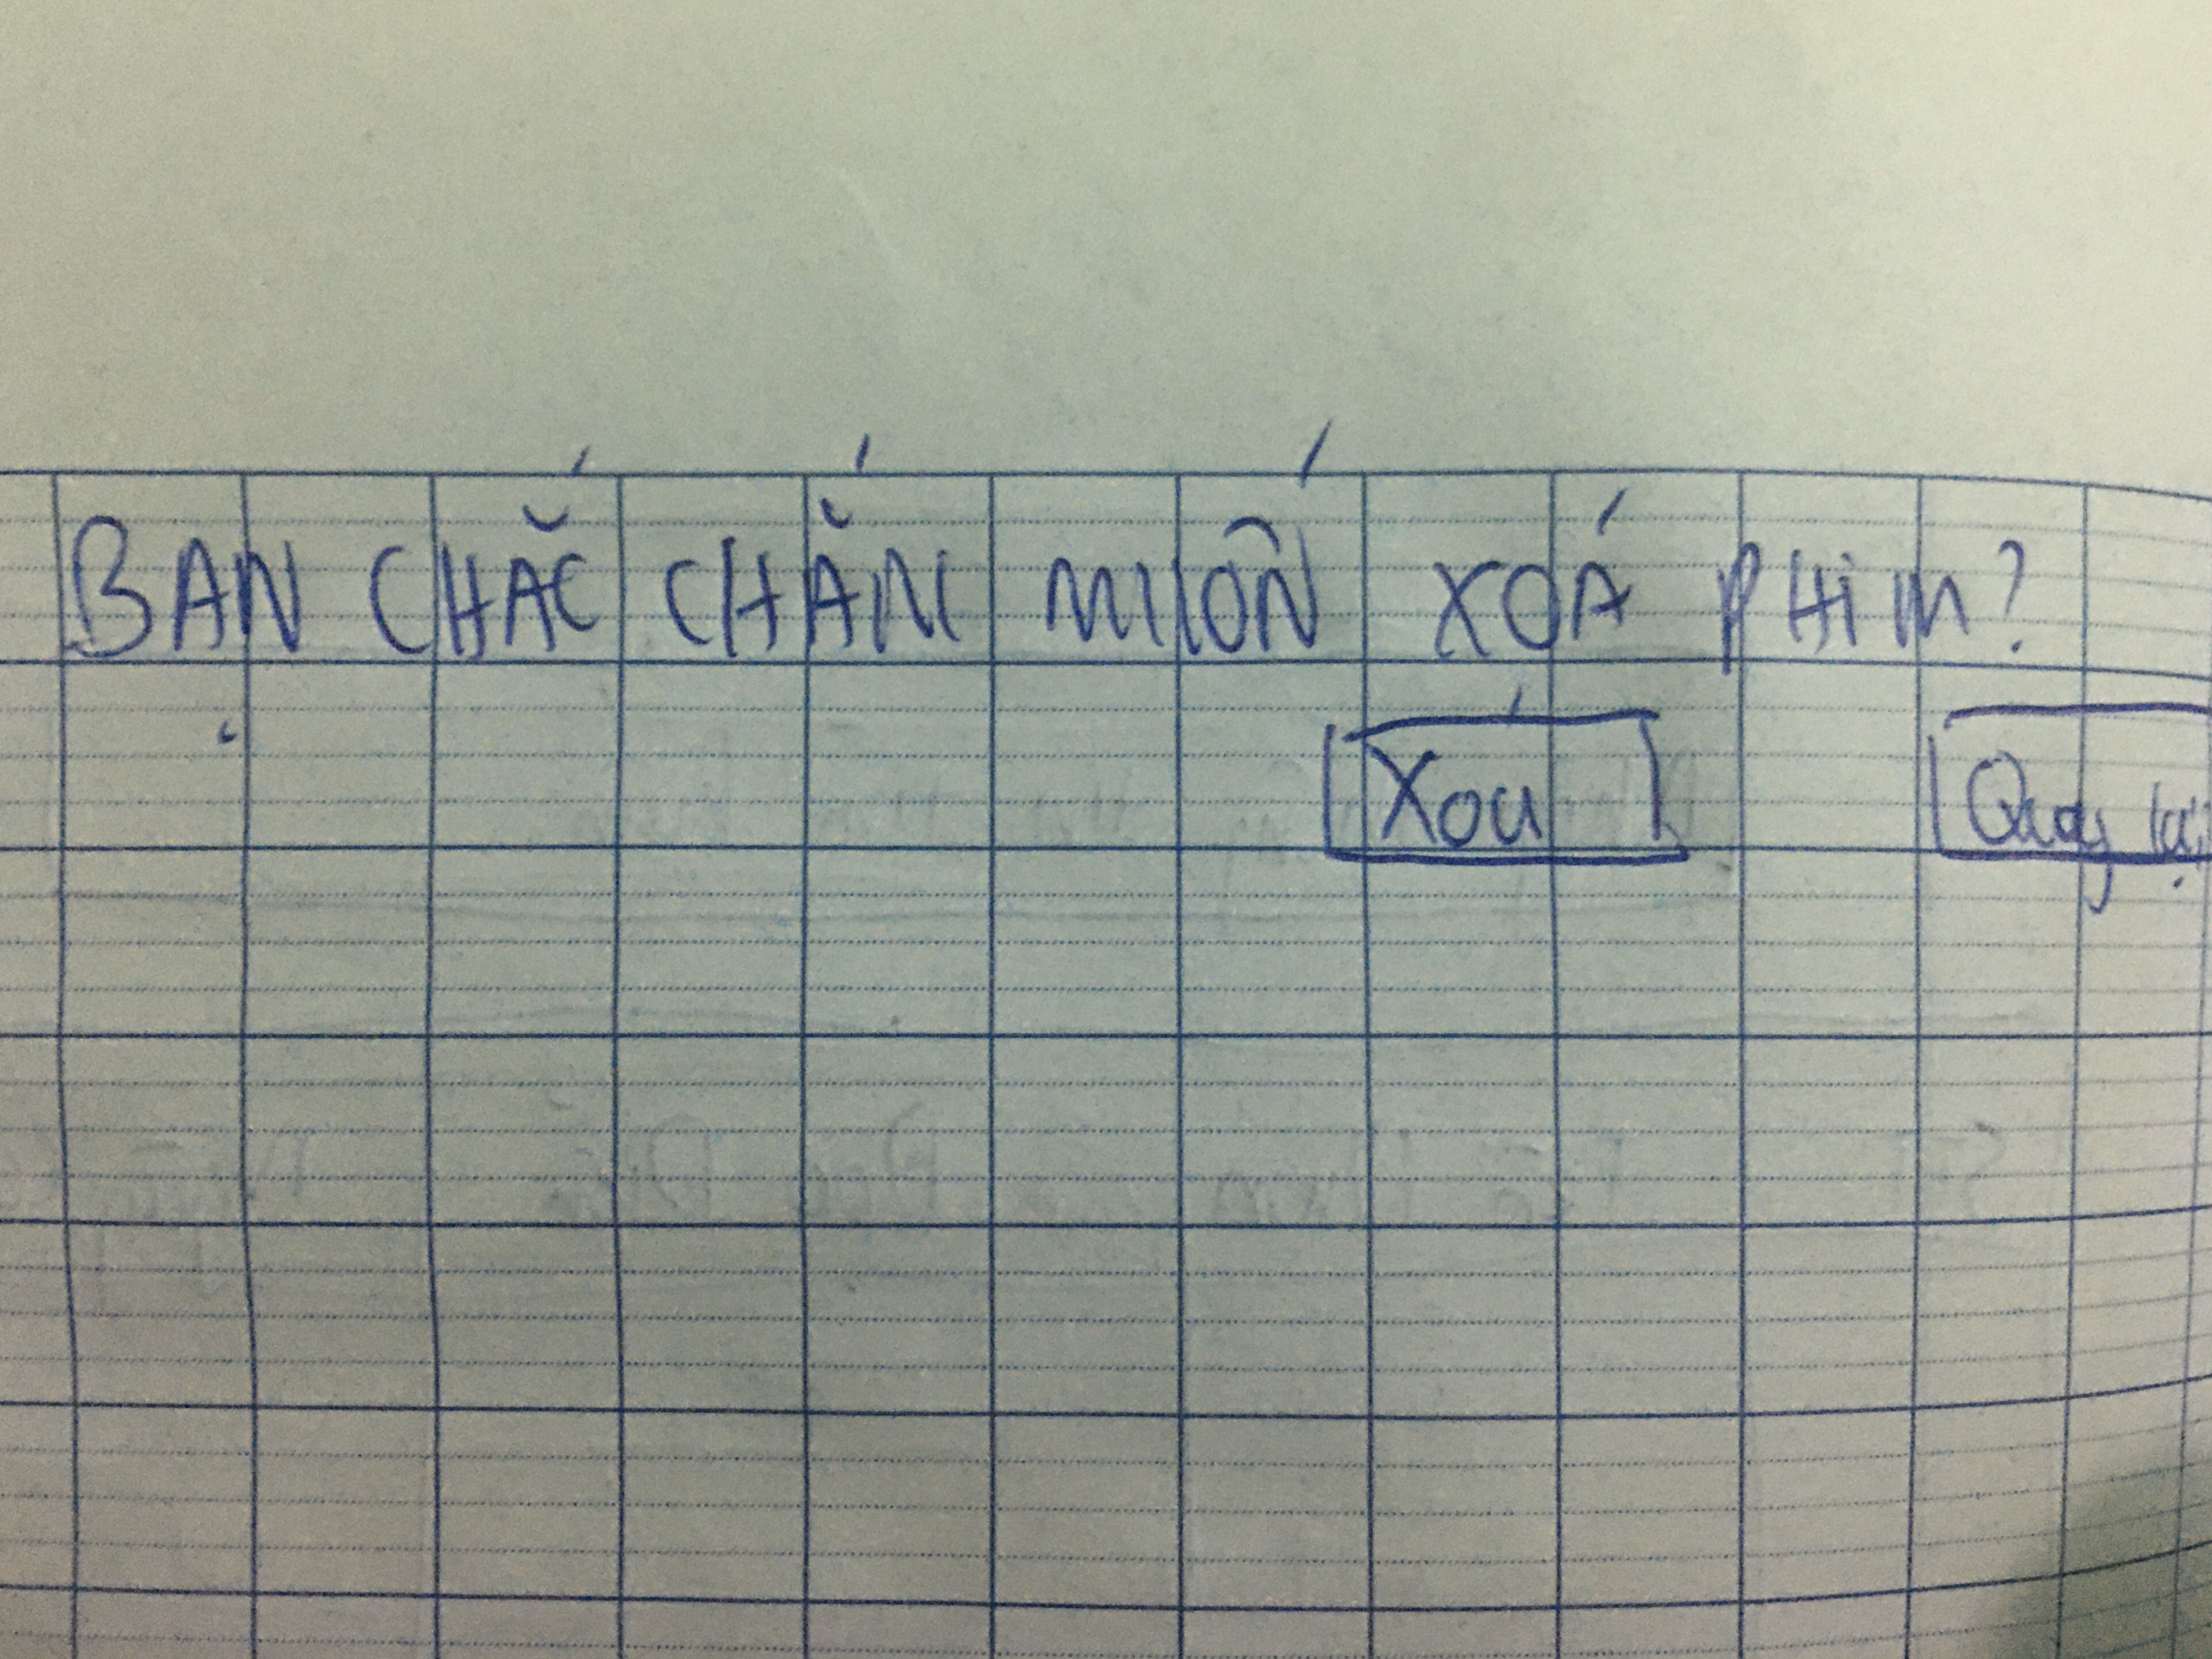 BẠN CHẮC CHẮN MUỐN XOÁ PHIM?
Xoá Quay lại